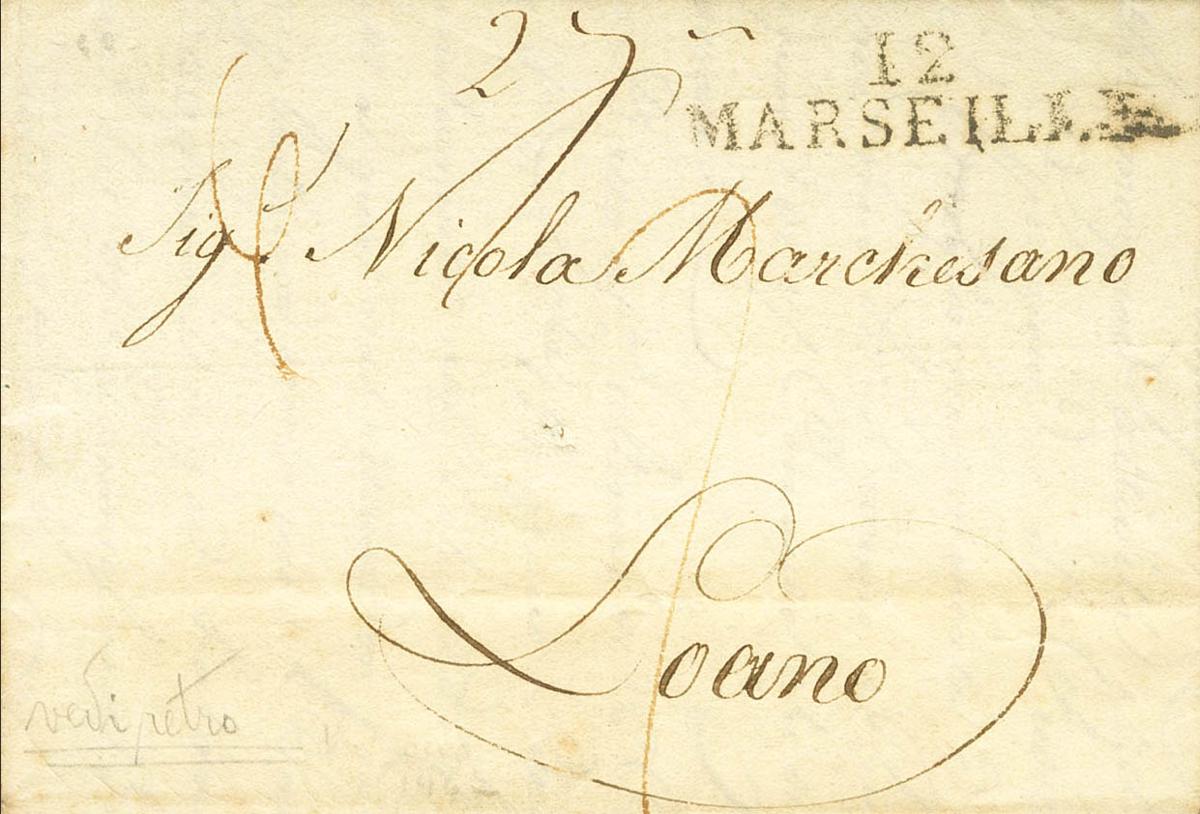 27
12
MARSEILLE
Sig.r Nicola Marchesano
Loano
vedi retro